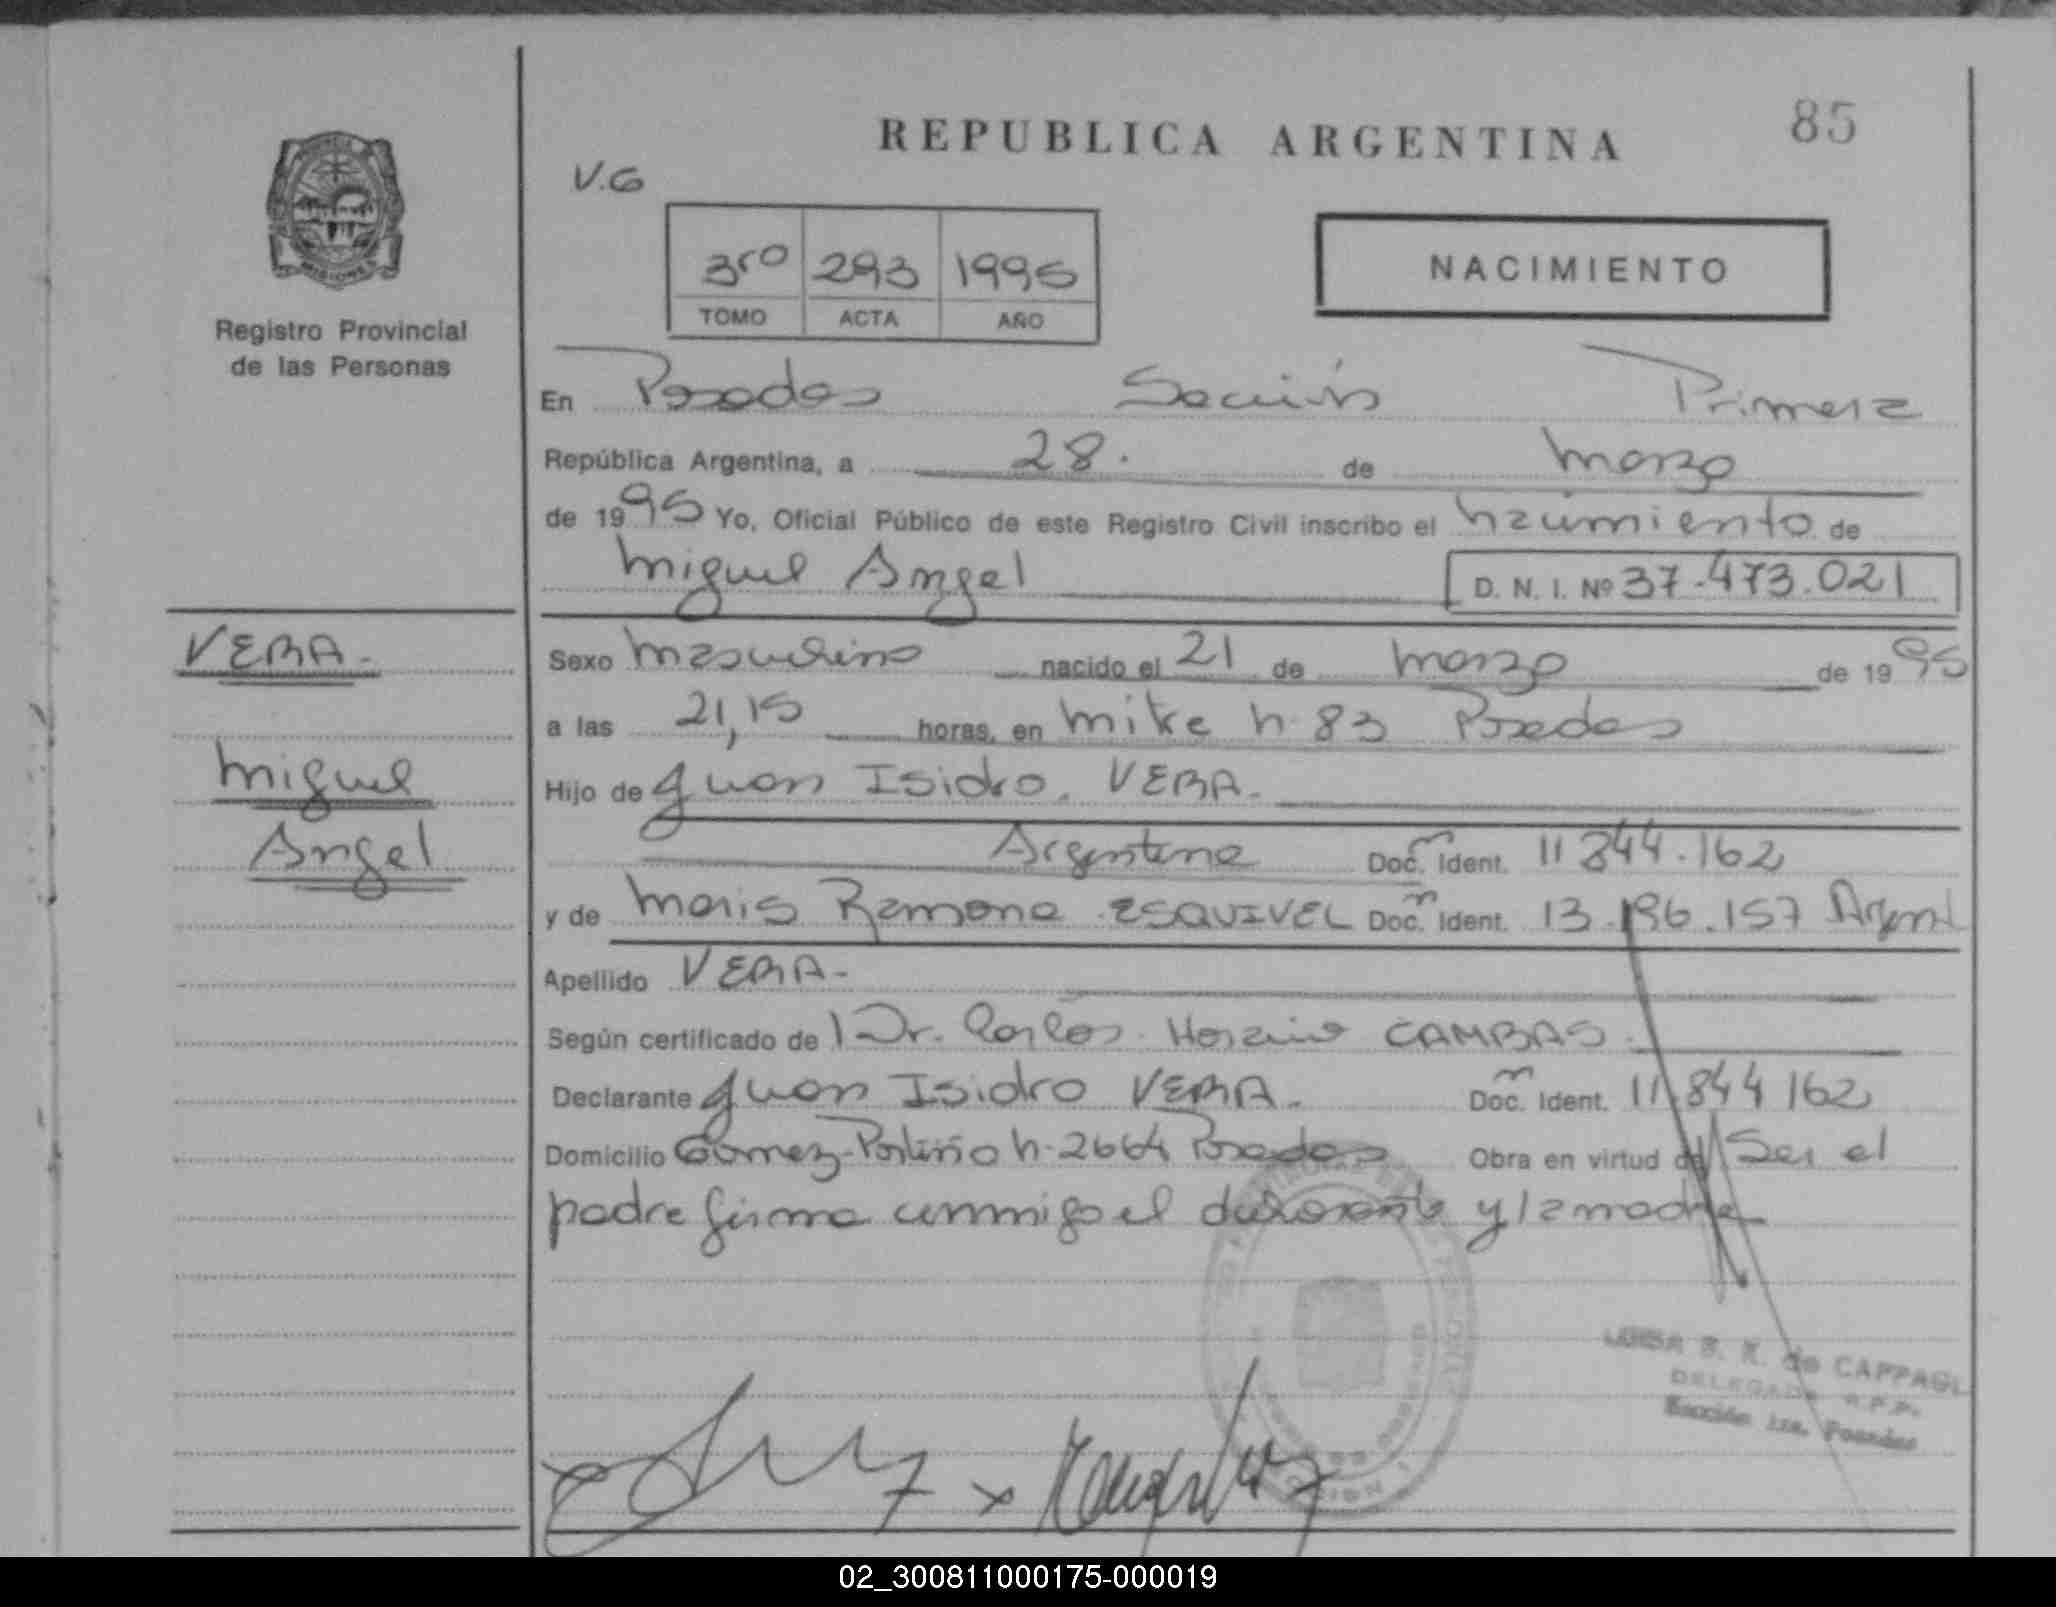 REPUBLICA ARGENTINA
85
V.G
3ro 293 1995
TOMO ACTA AÑO
NACIMIENTO
MISIONES
Registro Provincial
de las Personas
En Posadas Sección Primera
República Argentina, a 28. de marzo
de 1995 Yo, Oficial Público de este Registro Civil inscribo el nacimiento de
Miguel Angel D. N. I. Nº 37.473.021
VERA.
Miguel
Angel
Sexo masculino nacido el 21 de marzo de 1995
a las 21,15 horas, en mitre n. 83 Posadas
Hijo de Juan Isidro. VERA.
Argentina Doc. Ident. 11 844.162
y de Maria Ramona ESQUIVEL Doc. Ident. 13.196.157 Argent
Apellido VERA-
Según certificado de Dr. Carlos Horacio CAMBAS.
Declarante Juan Isidro VERA. Doc. Ident. 11.844 162
Domicilio Gomez Portiño n. 2664 Posadas Obra en virtud de Ser el
padre firma conmigo el declarante y la madre
LUISA B. K. de CAPPAGLI
DELEGADA R.P.P.
Sección 1ra. Posadas
02_300811000175-000019